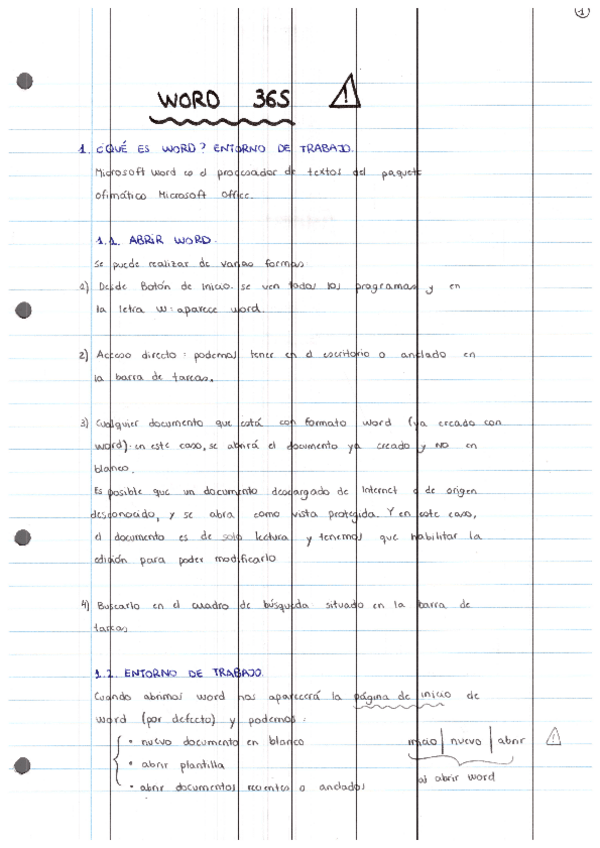 1
WORD 365 !
1. ¿QUÉ ES WORD? ENTORNO DE TRABAJO.
Microsoft word es el procesador de textos del paquete
ofimático Microsoft office.
1.1. ABRIR WORD.
Se puede realizar de varias formas
1) Desde Botón de Inicio. se ven todos los programas y en
la letra w: aparece word.
2) Acceso directo: podemos tener en el escritorio o anclado en
la barra de tareas.
3) Cualquier documento que está con formato word (ya creado con
word): en este caso, se abrirá el documento ya creado y NO en
blanco.
Es posible que un documento descargado de Internet o de origen
desconocido, y se abra como vista protegida. Y en este caso,
el documento es de solo lectura y tenemos que habilitar la
edición para poder modificarlo
4) Buscarlo en el cuadro de búsqueda situado en la barra de
tareas
1.2. ENTORNO DE TRABAJO.
Cuando abrimos word nos aparecerá la página de inicio de
word (por defecto) y podemos:
• nuevo documento en blanco
inicio | nuevo | abrir !
• abrir plantilla
• abrir documentos recientes o anclados
al abrir word